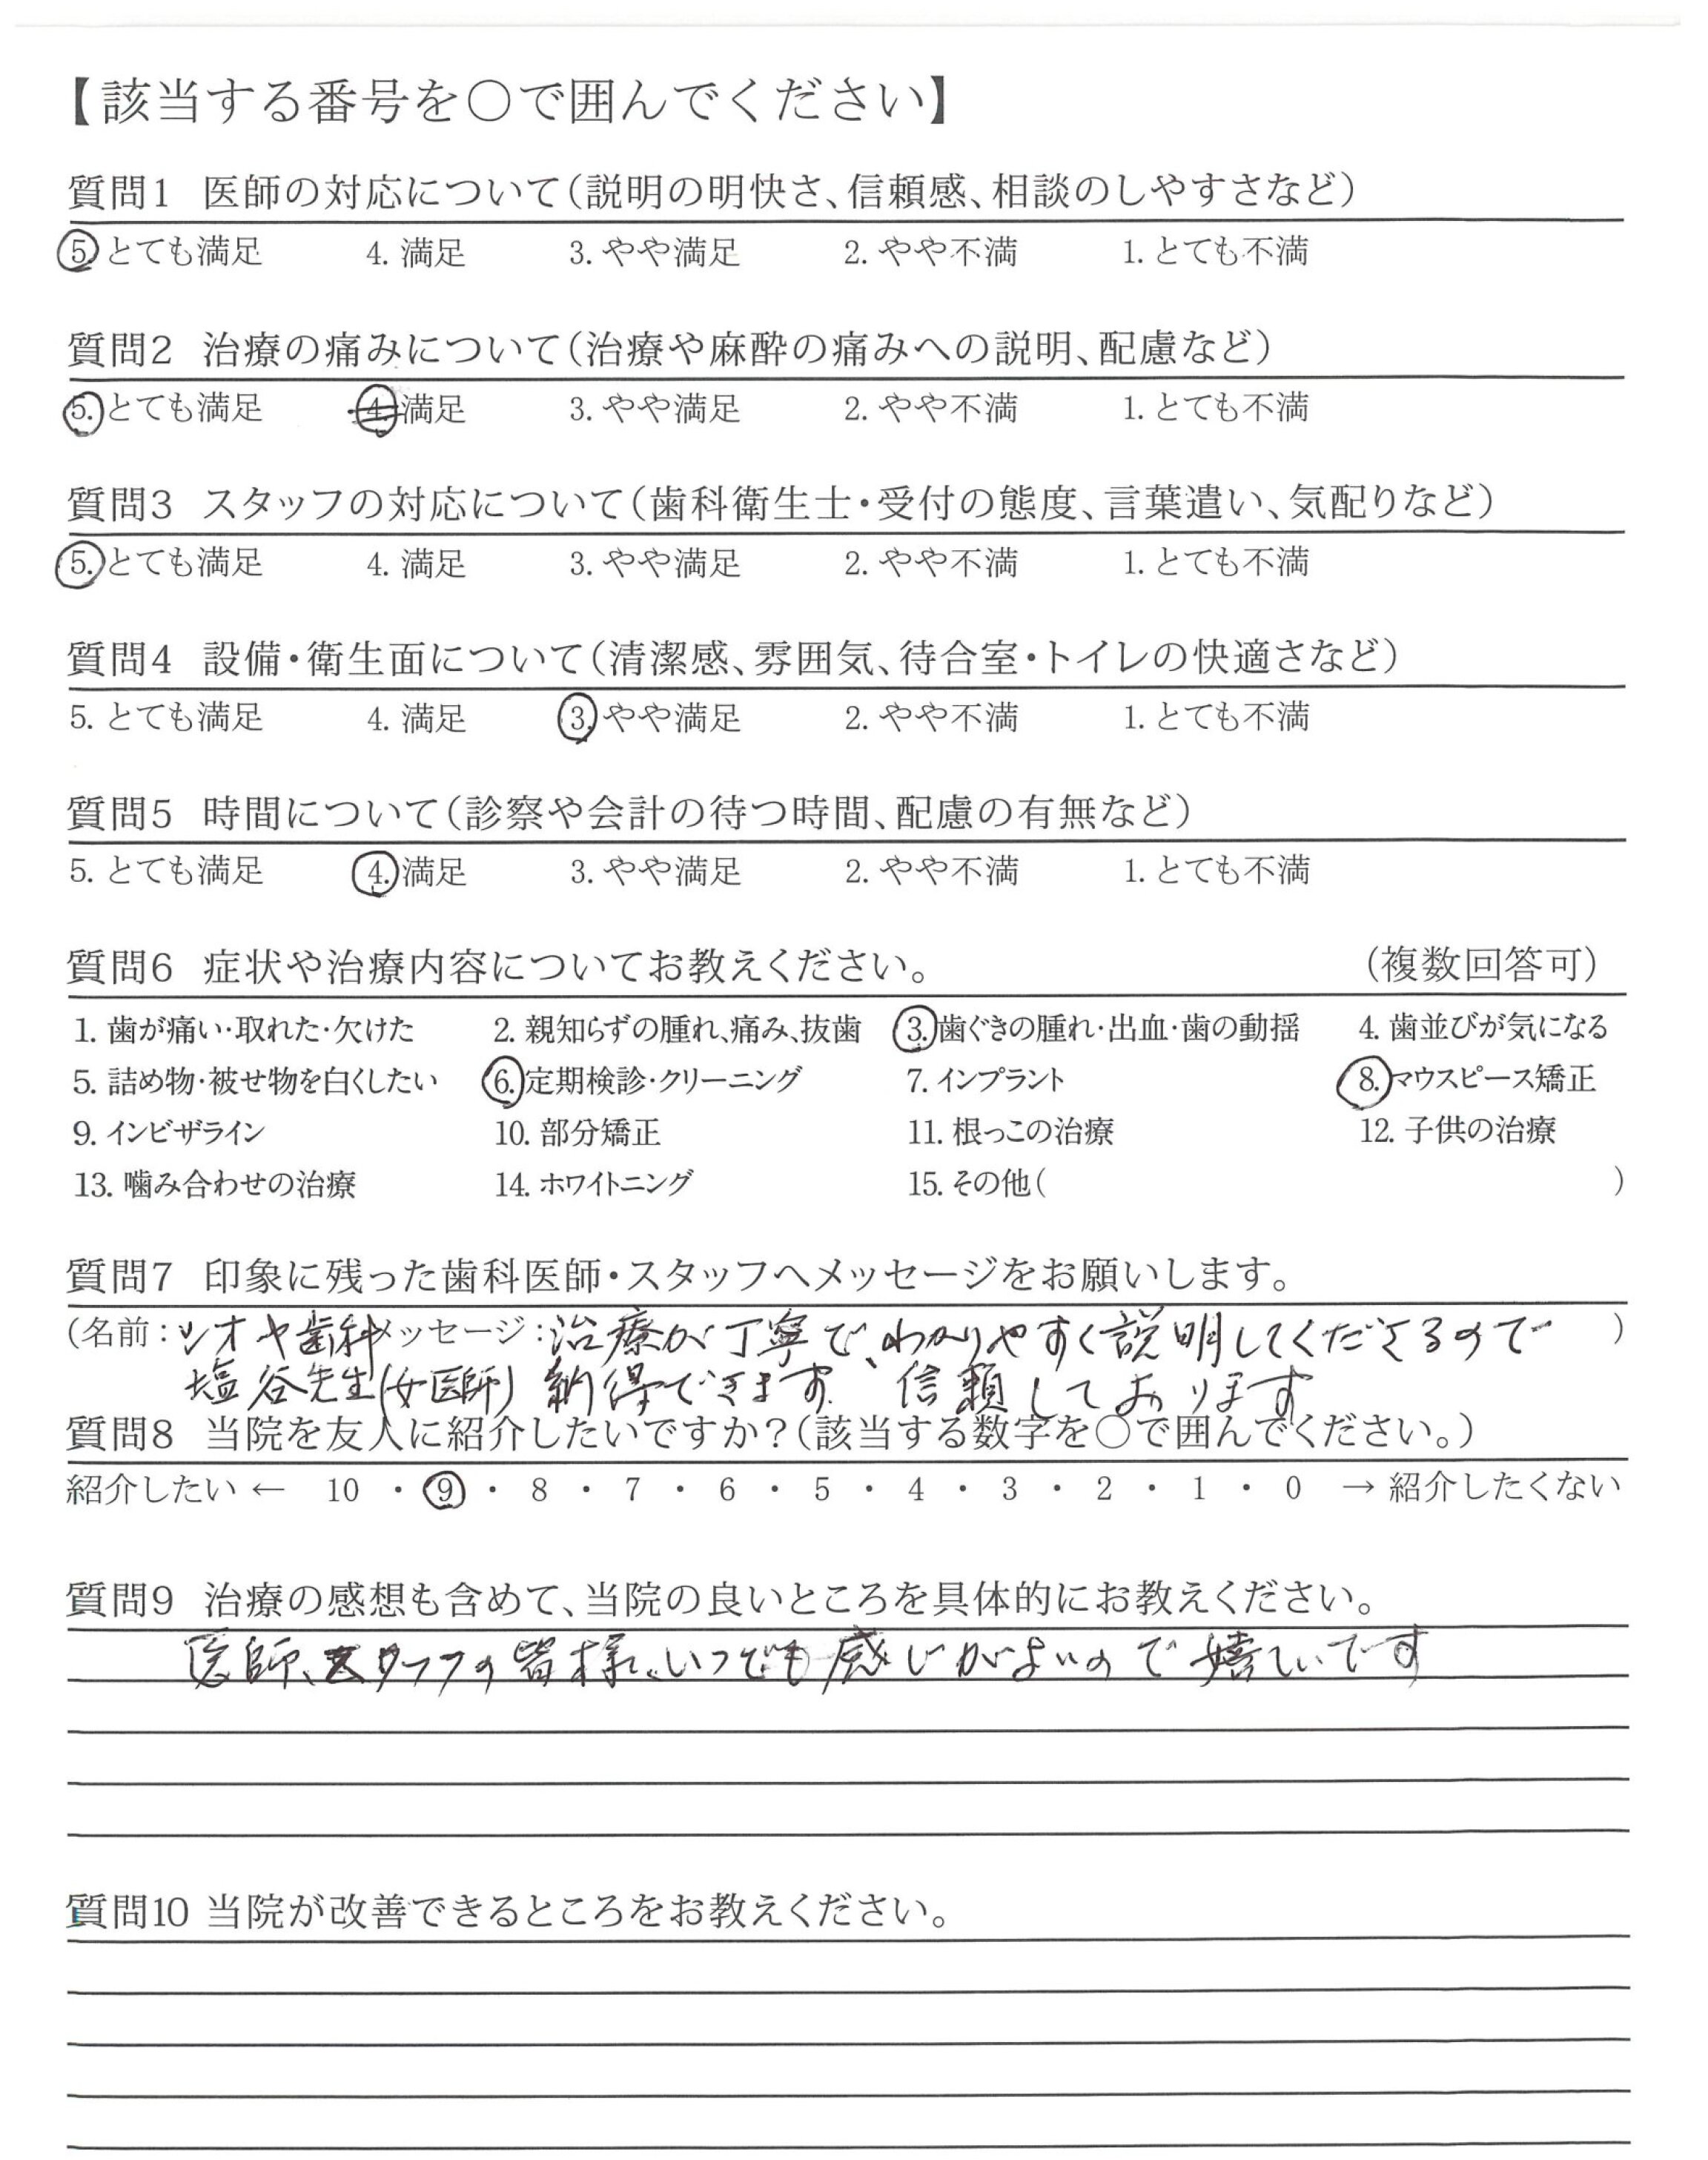 【該当する番号を○で囲んでください】
質問1 医師の対応について(説明の明快さ、信頼感、相談のしやすさなど)
5. とても満足 4. 満足 3. やや満足 2. やや不満 1. とても不満
質問2 治療の痛みについて(治療や麻酔の痛みへの説明、配慮など)
5. とても満足 4. 満足 3. やや満足 2. やや不満 1. とても不満
質問3 スタッフの対応について(歯科衛生士・受付の態度、言葉遣い、気配りなど)
5. とても満足 4. 満足 3. やや満足 2. やや不満 1. とても不満
質問4 設備・衛生面について(清潔感、雰囲気、待合室・トイレの快適さなど)
5. とても満足 4. 満足 3. やや満足 2. やや不満 1. とても不満
質問5 時間について(診察や会計の待つ時間、配慮の有無など)
5. とても満足 4. 満足 3. やや満足 2. やや不満 1. とても不満
質問6 症状や治療内容についてお教えください。 (複数回答可)
1. 歯が痛い・取れた・欠けた 2. 親知らずの腫れ、痛み、抜歯 3. 歯ぐきの腫れ・出血・歯の動揺 4. 歯並びが気になる
5. 詰め物・被せ物を白くしたい 6. 定期検診・クリーニング 7. インプラント 8. マウスピース矯正
9. インビザライン 10. 部分矯正 11. 根っこの治療 12. 子供の治療
13. 噛み合わせの治療 14. ホワイトニング 15. その他( )
質問7 印象に残った歯科医師・スタッフへメッセージをお願いします。
(名前:シオヤ歯科 メッセージ:治療が丁寧で、わかりやすく説明してくださるので )
塩谷先生(女医師) 納得できます。信頼しております
質問8 当院を友人に紹介したいですか?(該当する数字を○で囲んでください。)
紹介したい ← 10 ・ 9 ・ 8 ・ 7 ・ 6 ・ 5 ・ 4 ・ 3 ・ 2 ・ 1 ・ 0 → 紹介したくない
質問9 治療の感想も含めて、当院の良いところを具体的にお教えください。
医師、スタッフの皆様、いつでも感じがよいので嬉しいです
質問10 当院が改善できるところをお教えください。